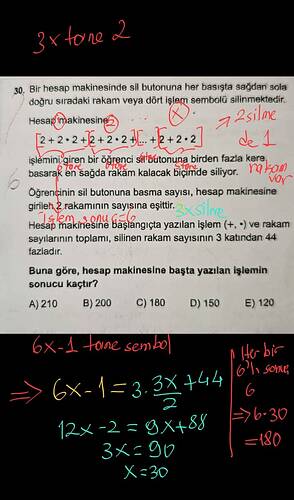 3x tane 2
30. Bir hesap makinesinde sil butonuna her basışta sağdan sola
doğru sıradaki rakam veya dört işlem sembolü silinmektedir.
Hesap makinesine
1 2 x
[2 + 2 • 2 + [2 + 2 • 2 + [... + [2 + 2 • 2]
→ 2 silme
de 1
rakam
var
işlemini giren bir öğrenci sil butonuna birden fazla kere
basarak en sağda rakam kalacak biçimde siliyor.
Öğrencinin sil butonuna basma sayısı, hesap makinesine
girilen 2 rakamının sayısına eşittir.
işlem sonuc=6
3x silme
Hesap makinesinde başlangıçta yazılan işlem (+, •) ve rakam
sayılarının toplamı, silinen rakam sayısının 3 katından 44
fazladır.
Buna göre, hesap makinesine başta yazılan işlemin
sonucu kaçtır?
A) 210 B) 200 C) 180 D) 150 E) 120
6x-1 tane sembol
⇒ 6x-1 = 3. 3x/2 + 44
12x-2 = 9x+88
3x = 90
x=30
Her bir
6'lı sonuç
6
⇒ 6.30
=180